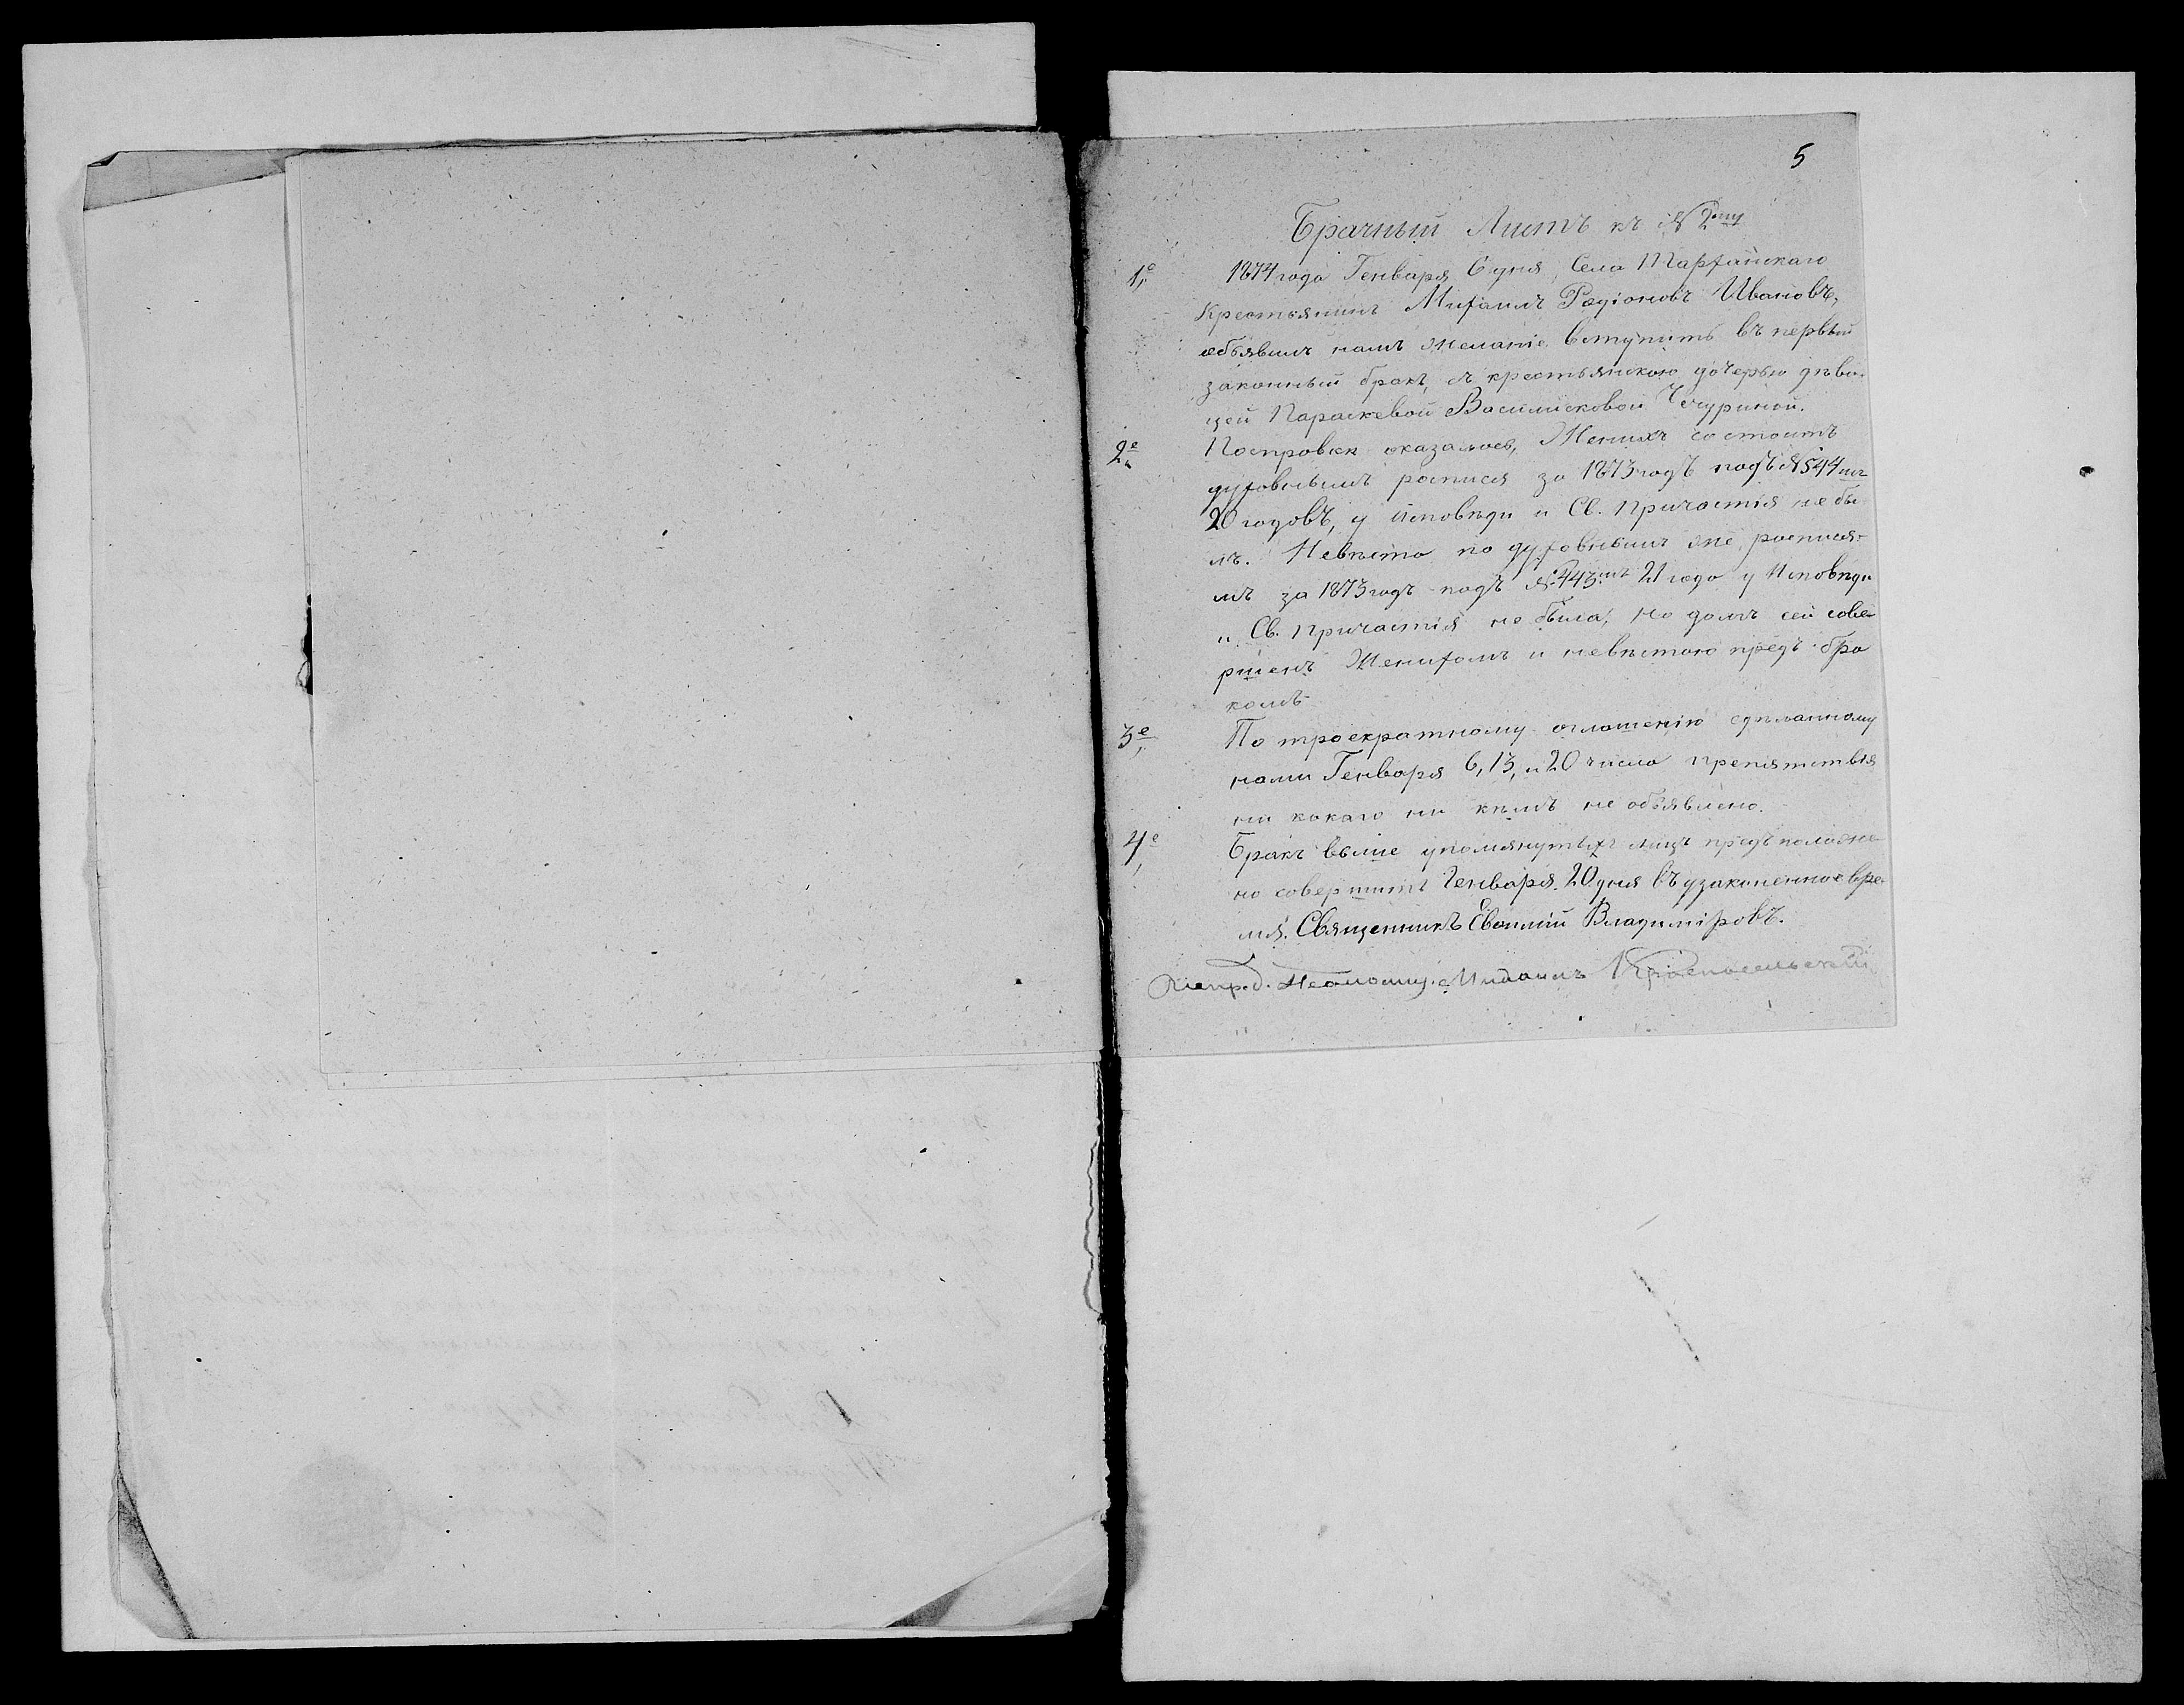 5
Брачный Листъ къ № 2му
1е, 1874 года Генваря 6 дня, Села Шарфайскаго
Крестьянинъ Михаилъ Радіоновъ Ивановъ,
объявилъ намъ желаніе вступить въ первый
законный бракъ, съ крестьянскою дочерью дѣви-
цей Параскевой Васильсковой Чечуриной.
2е, Поспровкѣ оказалось, Женихъ состоитъ
духовнымъ росписи за 1873 годъ подъ № 544мъ
20 годовъ, у Исповѣди и Св. Причастія не бы
лъ. Невѣста по духовнымъ же росписям
мъ за 1873 годъ подъ № 443.мъ 21 года у Исповѣди
и Св. Причастія не была, но долгъ сей сове-
ршенъ Женихомъ и невѣстою предъ бра
комъ
3е, По троекратному оглашенію сдѣланному
нами Генваря 6, 13, и 20 числа препятствія
ни какаго ни кѣмъ не объявлено.
4е, Бракъ выше упомянутыхъ лицъ предположе-
но совершить Генваря 20 дня въ узаконенное вре-
мя. Священникъ Евѳимій Владиміровъ.
Испр. д. Псаломщ. Михаилъ Красносельскій